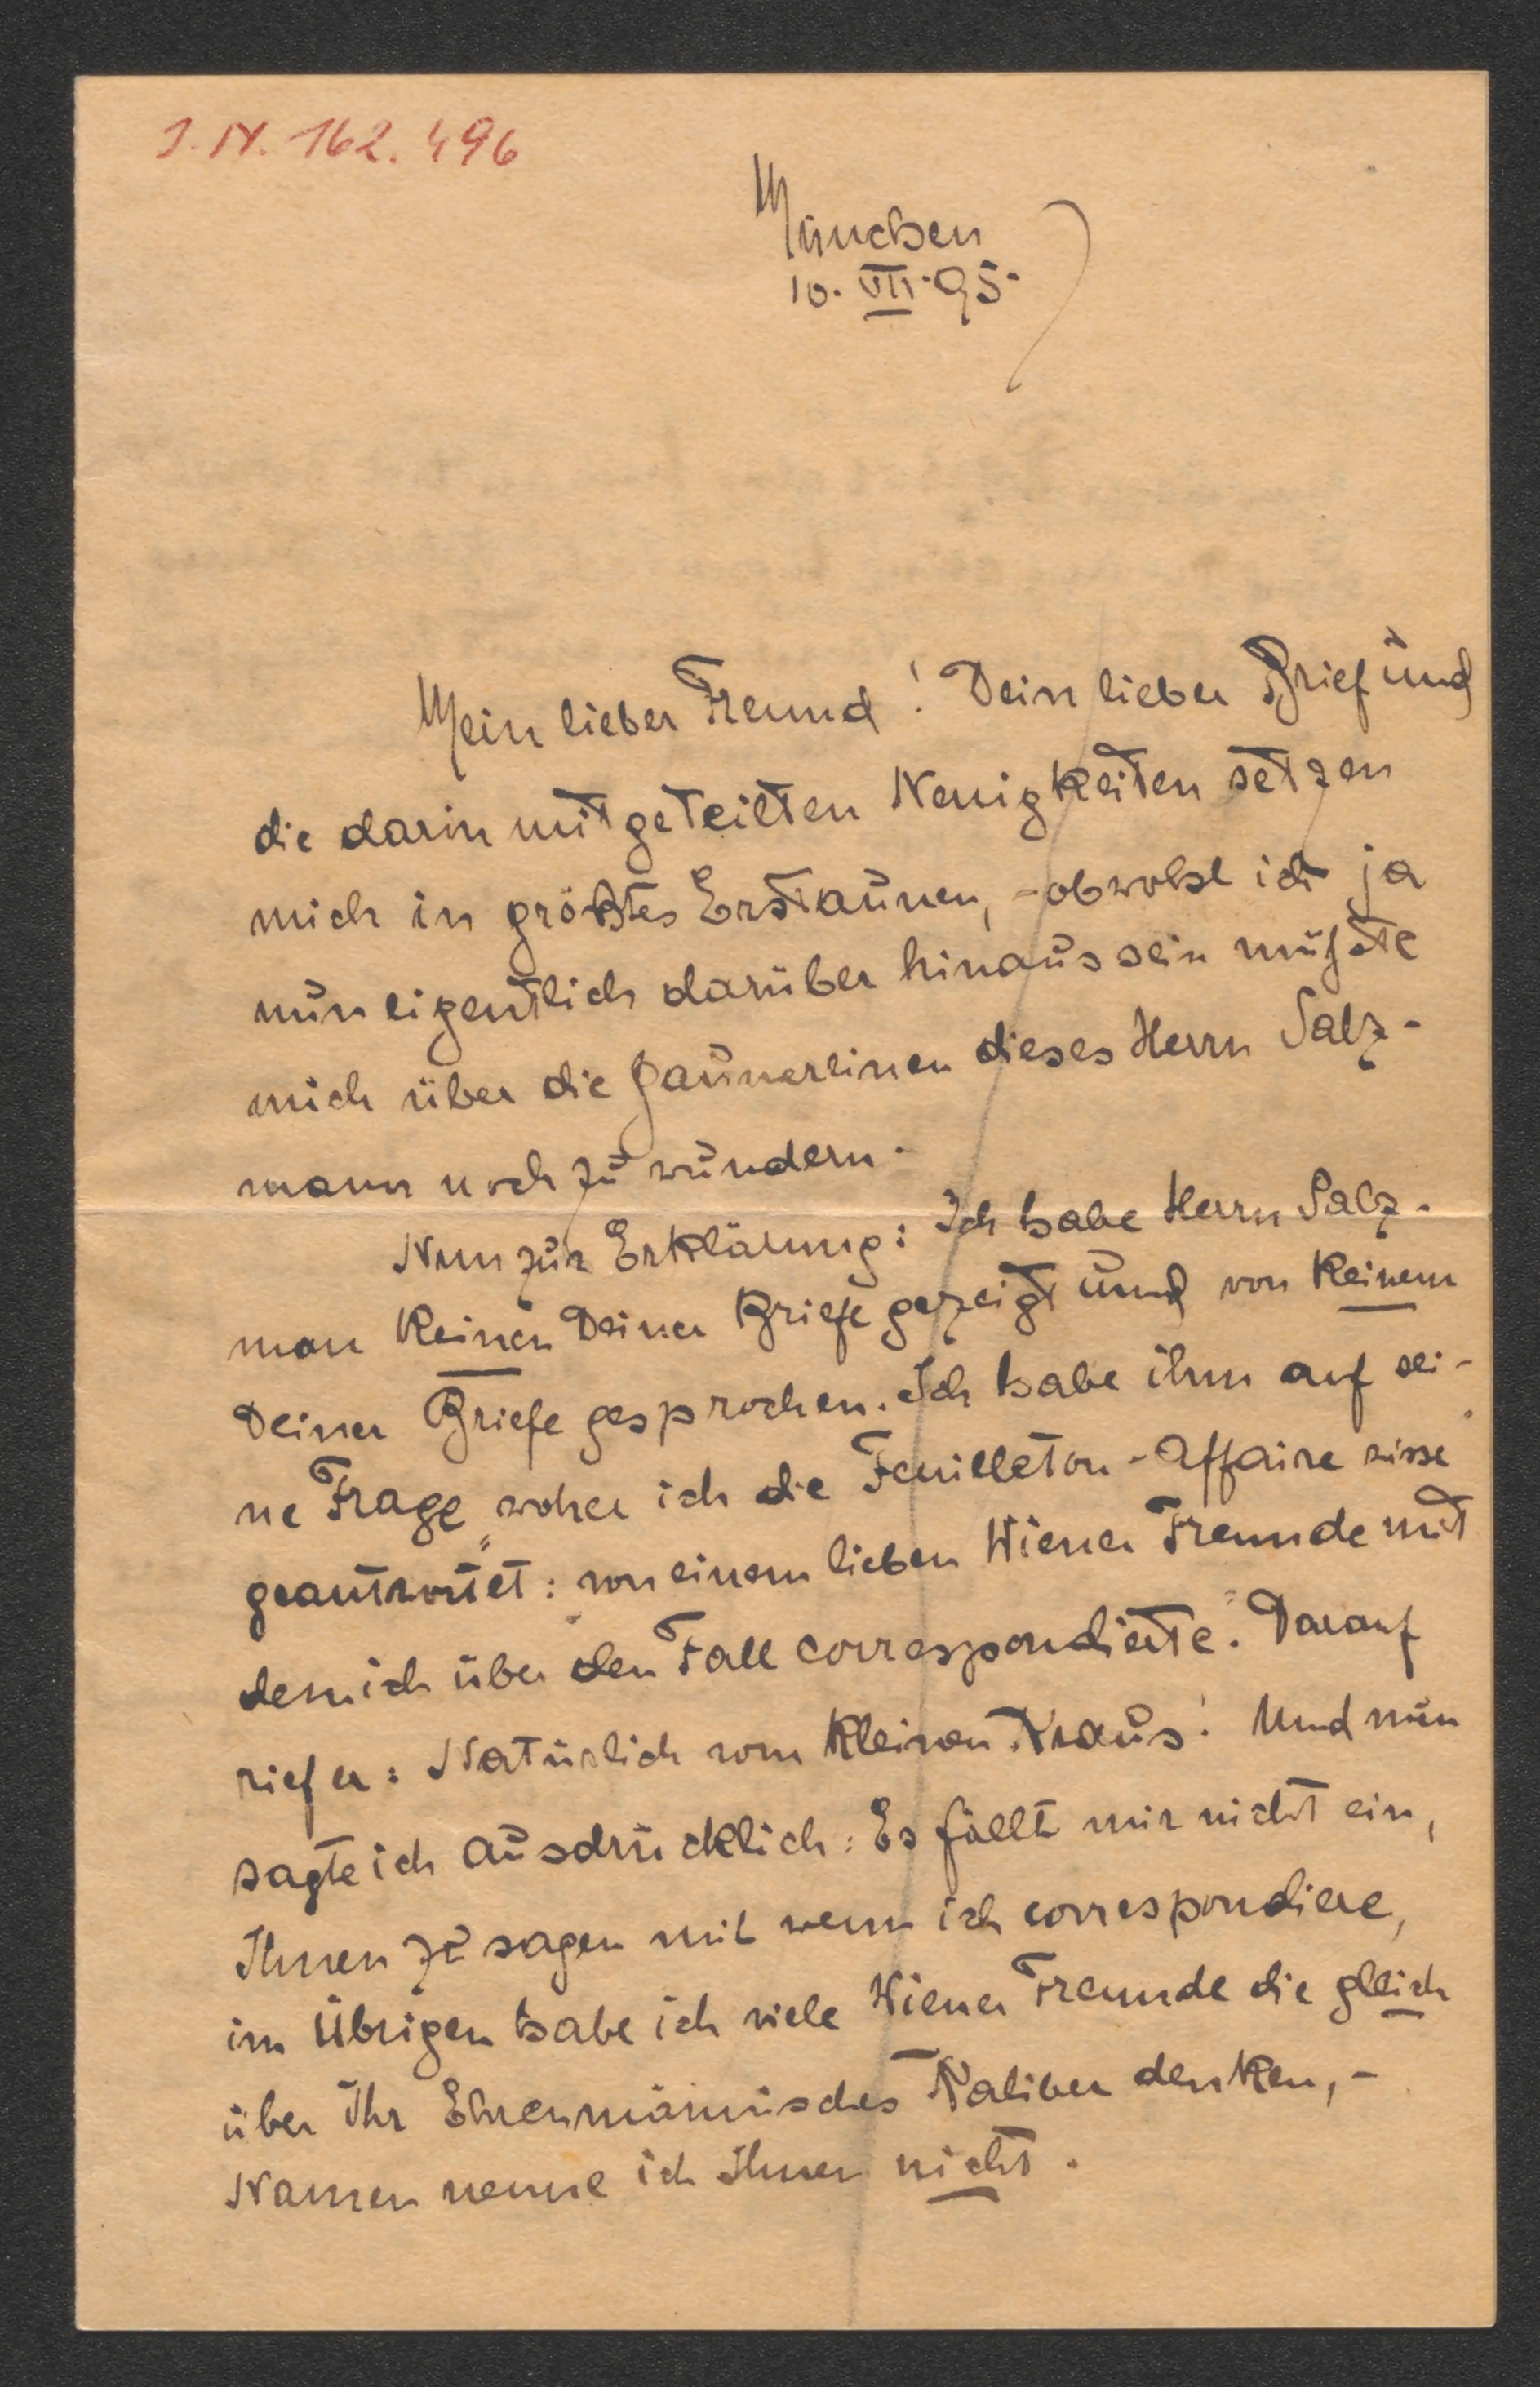 J.N. 162.496
München
10. VII. 95.
Mein lieber Freund! Dein lieber Brief und
die darin mitgeteilten Neuigkeiten setzen
mich in größtes Erstaunen, - obwohl ich ja
nun eigentlich darüber hinaus sein müßte
mich über die Gaunereinen dieses Herrn Salz-
mann noch zu wundern.
Nun zur Erklärung: Ich habe Herrn Salz-
man keinen Deiner Briefe gezeigt und von keinem
Deiner Briefe gesprochen. Ich habe ihm auf sei-
ne Frage woher ich die Feuilleton-Affaire wisse
geantwortet: „von einem lieben Wiener Freunde mit
dem ich über den Fall correspondierte". Darauf
rief er: Natürlich vom kleinen Kraus! Und nun
sagte ich ausdrücklich: Es fällt mir nicht ein,
Ihnen zu sagen mit wem ich correspondiere,
im Übrigen habe ich viele Wiener Freunde die gleich
über Ihr Ehrenmännisches Kaliber denken, -
Namen nenne ich Ihnen nicht.